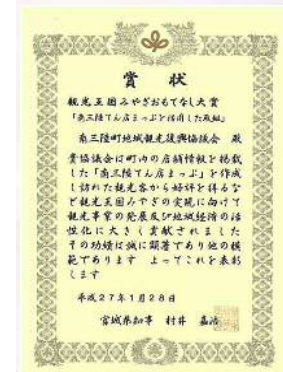 賞状
観光王国みやぎおもてなし大賞
「南三陸てん店まっぷを活用した取組」
南三陸町地域観光復興協議会 殿
貴協議会は町内の店舗情報を掲載
した「南三陸てん店まっぷ」を作成
し訪れた観光客から好評を得るな
ど観光王国みやぎの実現に向けて
観光事業の発展及び地域経済の活
性化に大きく貢献されました
その功績は誠に顕著であり他の模
範であります よってこれを表彰
します
平成27年1月28日
宮城県知事 村井 嘉浩